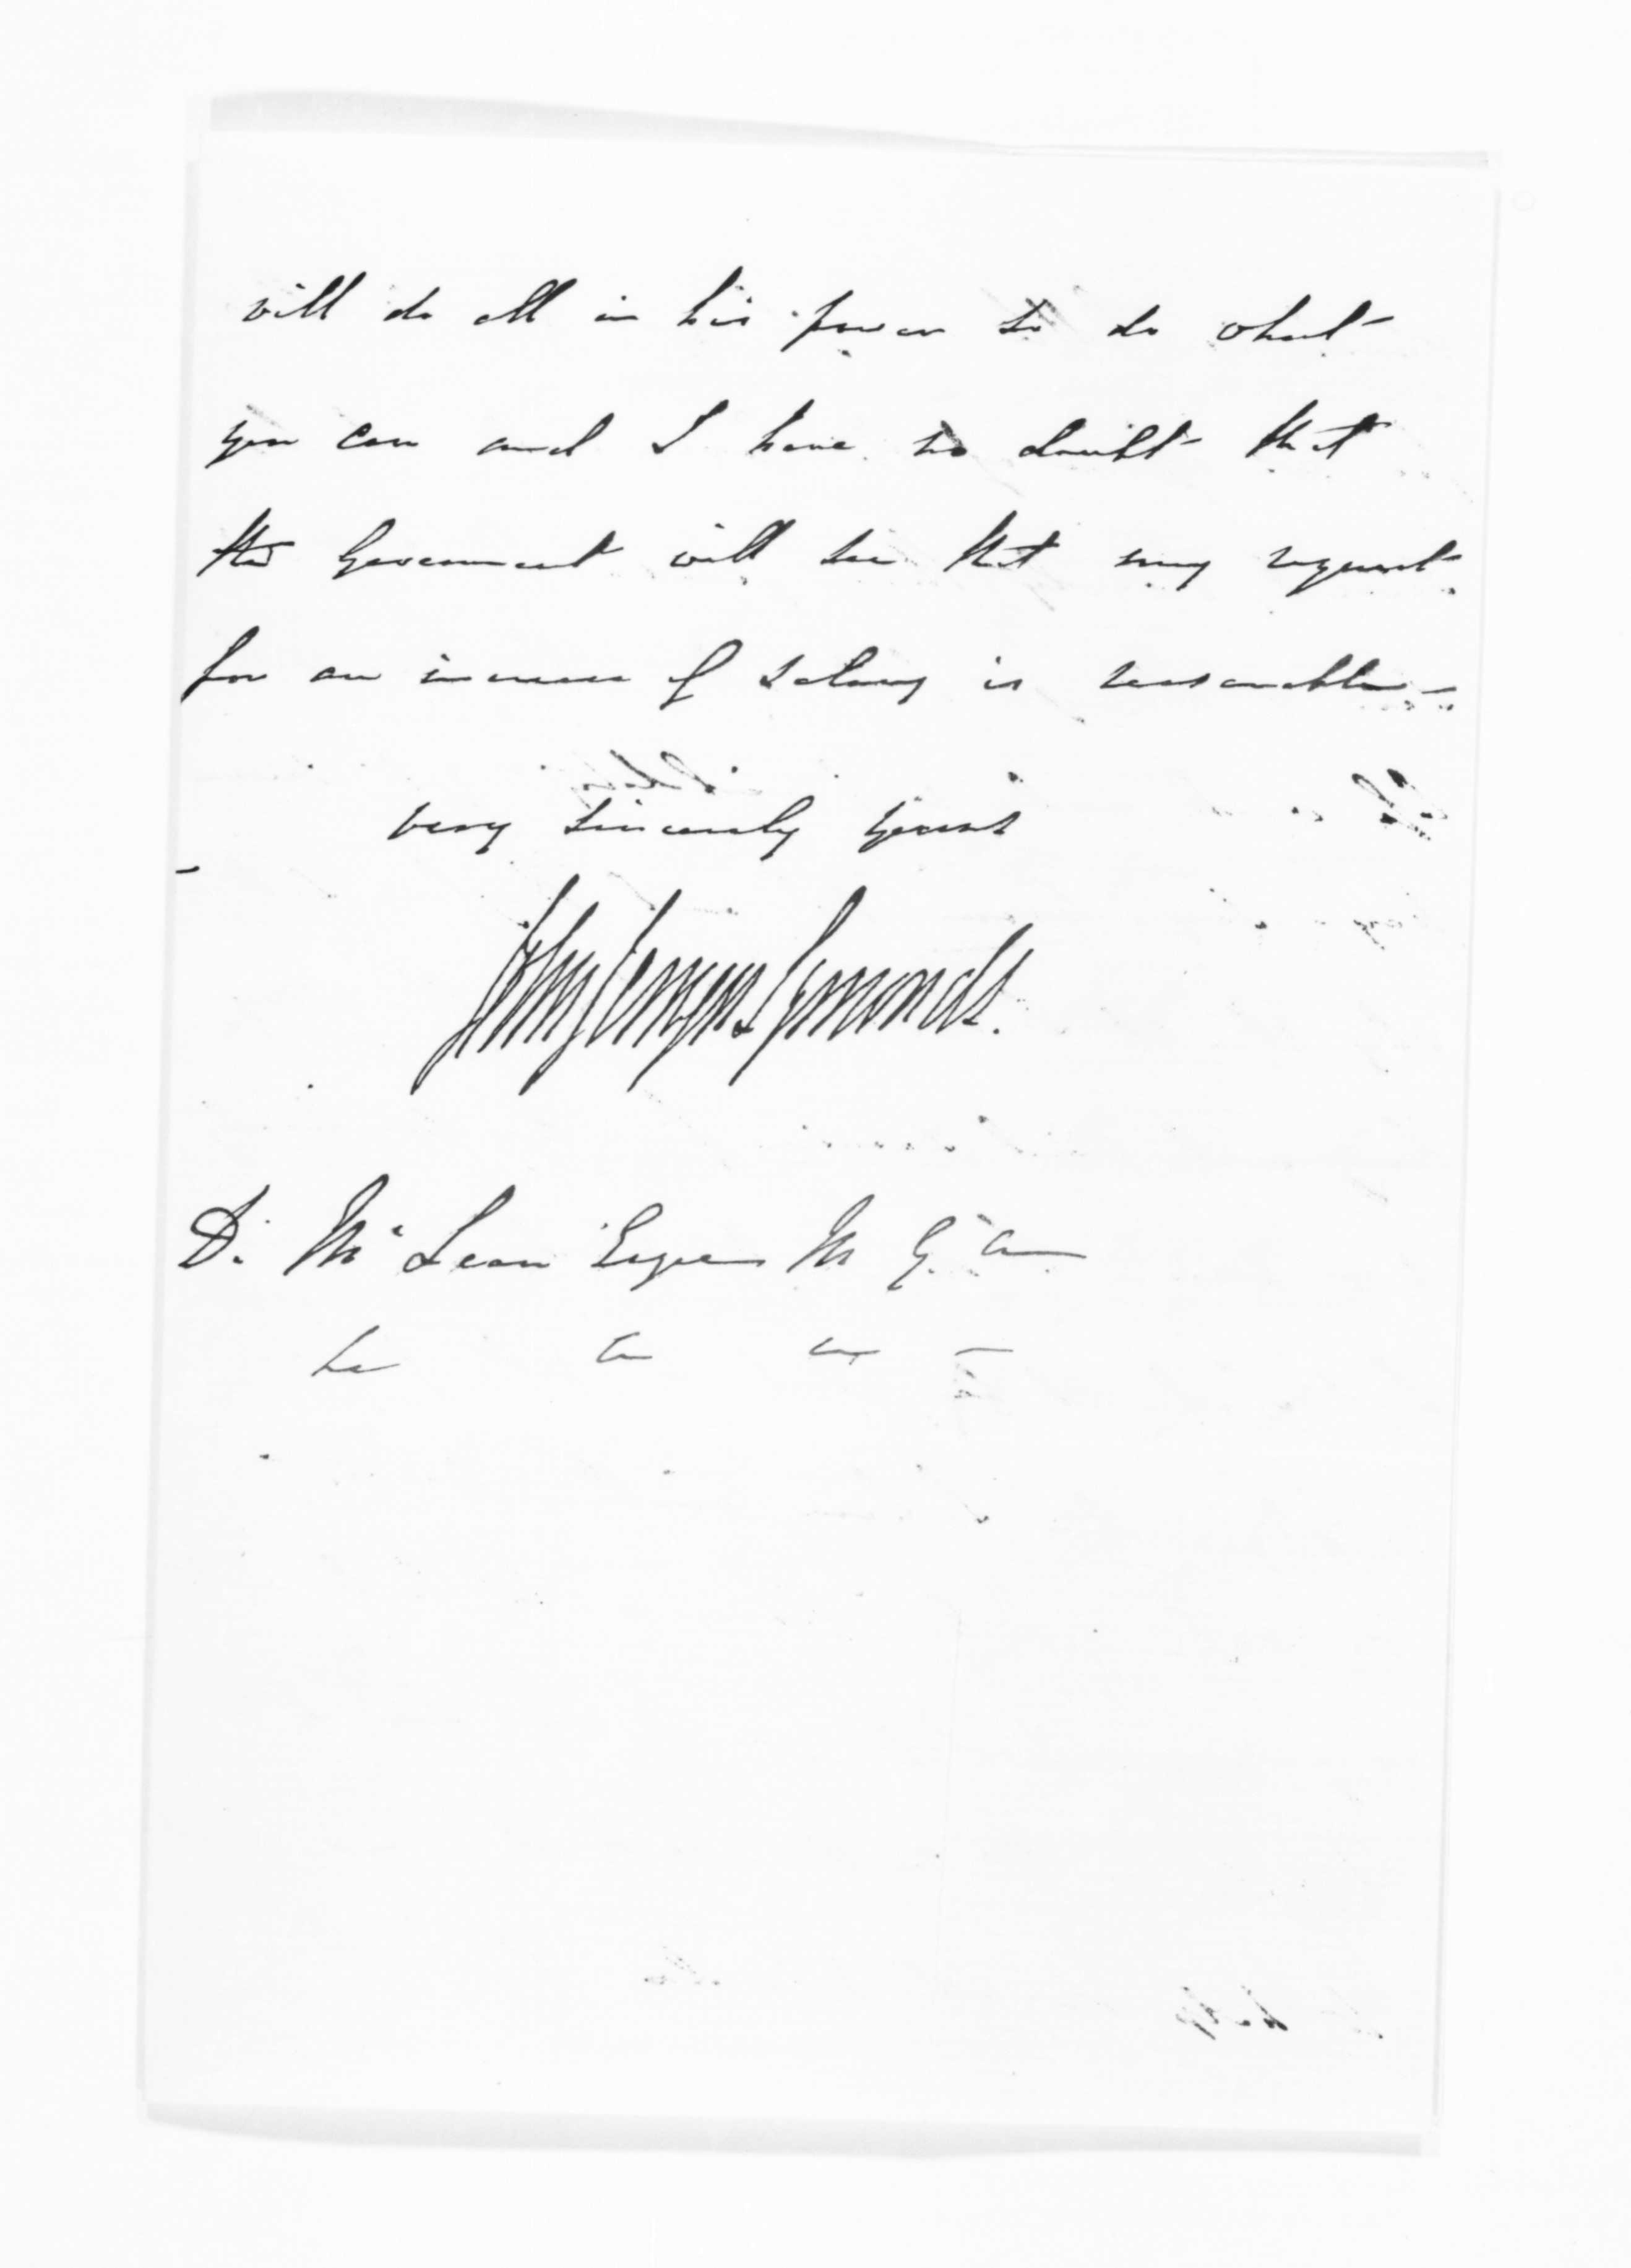 will do all in his power to do what
you can and I have no doubt that
the Government will see that my request
for an increase of salary is reasonable -
very sincerely yours
John Jermyn Symonds.
D. McLean Esqre M G A
&c &c &c -